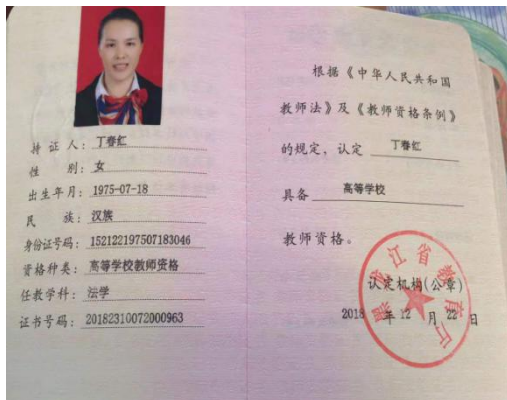 持 证 人: 丁春红
性 别: 女
出生年月: 1975-07-18
民 族: 汉族
身份证号码: 152122197507183046
资格种类: 高等学校教师资格
任教学科: 法学
证书号码: 20182310072000963
根据《中华人民共和国
教师法》及《教师资格条例》
的规定, 认定 丁春红
具备 高等学校
教师资格。
黑龙江省教育厅
认定机构(公章)
2018 年 12 月 22 日